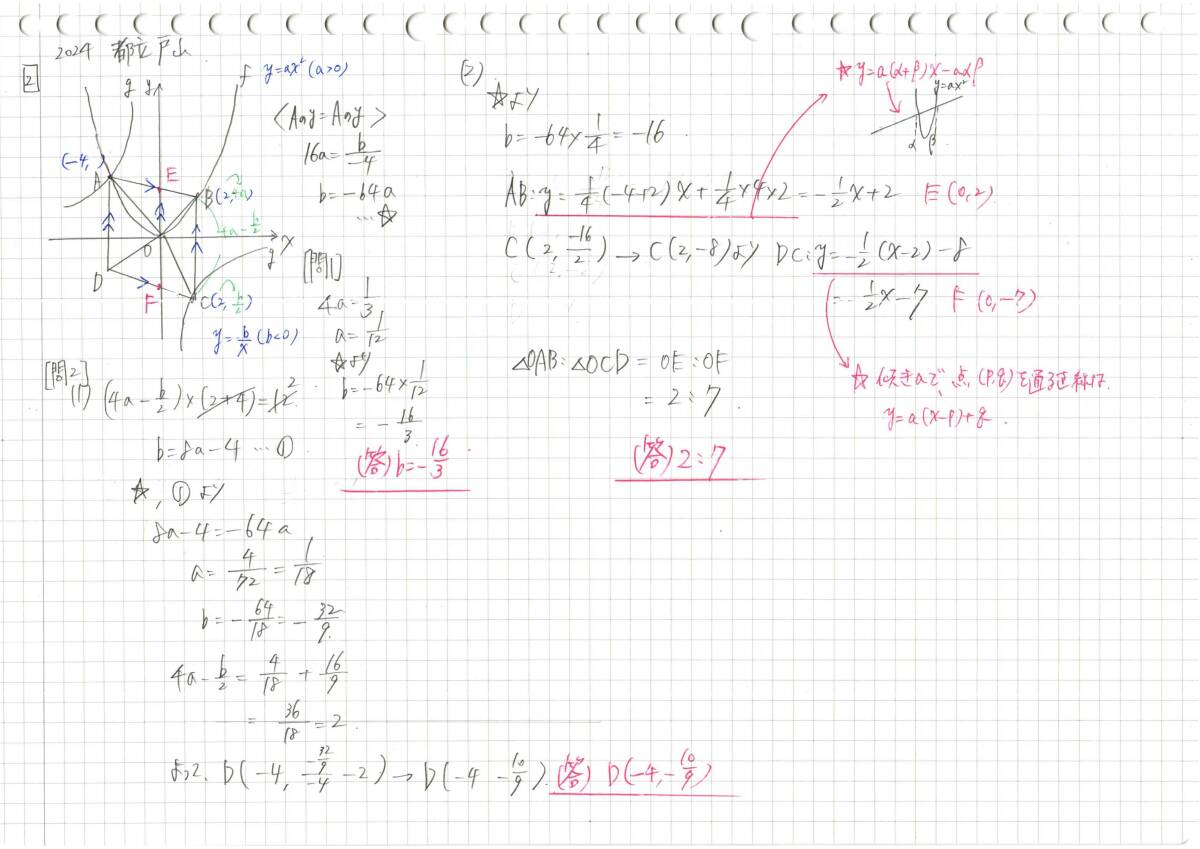 2024 都立戸山
2
g y f y=ax²(a>0)
(-4, )
A E
B(2,4a)
4a-b/2
O x
g
D
F C(2, b/2)
y=b/x (b<0)
<Aのy=Aのy>
16a=b/-4
b=-64a
…☆
[問1]
4a=1/3
a=1/12
☆より
b=-64×1/12
=-16/3
(答) b=-16/3
[問2]
(1) (4a-b/2)×(2+4)=12 2
b=8a-4 …①
☆, ①より
8a-4=-64a
a=4/72=1/18
b=-64/18=-32/9
4a-b/2=4/18+16/9
=36/18=2
よって、D(-4, -32/9/-4 -2)→D(-4 -10/9). (答) D(-4,-10/9)
(2)
☆より
b=-64×1/4=-16
AB:y=1/4(-4+2)x+1/4×4×2=-1/2x+2 E(0,2)
C(2, -16/2)→C(2,-8)より DC:y=-1/2(x-2)-8
=-1/2x-7 F(0,-7)
△OAB:△OCD=OE:OF
=2:7
(答) 2:7
☆y=a(α+β)x-aαβ
y=ax²
α β
☆傾きaで、点(p,q)を通る直線は
y=a(x-p)+q